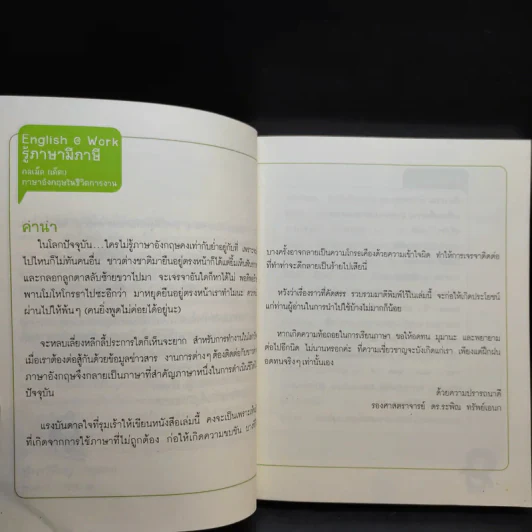 English @ Work
รู้ภาษามีภาษี
ภาษาอังกฤษพิชิตการงาน
คำนำ
ในโลกปัจจุบัน...ใครไม่รู้ภาษาอังกฤษคงเท่ากับย่ำอยู่กับที่
ไปไหนก็ไม่ทันคนอื่น ชาวต่างชาติมายืนอยู่ตรงหน้าก็ได้แต่ยิ้ม
และกลอกลูกตาสลับซ้ายขวาไปมา จะเจรจาอันใดก็หาได้ไม่
พานโมโหโกรธาไปซะอีกว่า มาหยุดยืนอยู่ตรงหน้าเราทำไมนะ
ผ่านไปให้พ้นๆ (คนยิ่งพูดไม่ค่อยได้อยู่นะ)
จะหลบเลี่ยงหลีกลี้ประการใดก็เห็นจะยาก สำหรับการทำงานใน
เมื่อเราต้องต่อสู้กันด้วยข้อมูลข่าวสาร งานการต่างๆ ต้องติดต่อกับ
ภาษาอังกฤษจึงกลายเป็นภาษาที่สำคัญภาษาหนึ่งในการดำเนิน
ปัจจุบัน
แรงบันดาลใจที่รุมเร้าให้เขียนหนังสือเล่มนี้ คงจะเป็นเพราะ
ที่เกิดจากการใช้ภาษาที่ไม่ถูกต้อง ก่อให้เกิดความขบขัน
บางครั้งอาจกลายเป็นความโกรธเคืองด้วยความเข้าใจผิด ทำให้การเจรจาติดต่อ
ที่ทำท่าจะดีกลายเป็นร้ายไปเสียนี่
หวังว่าเรื่องราวที่คัดสรร รวบรวมมาตีพิมพ์ไว้ในเล่มนี้ จะก่อให้เกิดประโยชน์
แก่ท่านผู้อ่านในการนำไปใช้บ้างไม่มากก็น้อย
หากเกิดความท้อถอยในการเรียนภาษา ขอให้อดทน มุมานะ และพยายาม
ต่อไปอีกนิด ไม่นานหรอกค่ะ ที่ความเชี่ยวชาญจะบังเกิดแก่เรา เพียงแต่ฝึกฝน
อดทนจริงๆ เท่านั้นเอง
ด้วยความปรารถนาดี
รองศาสตราจารย์ ดร.ระพิณ ทรัพย์เอนก